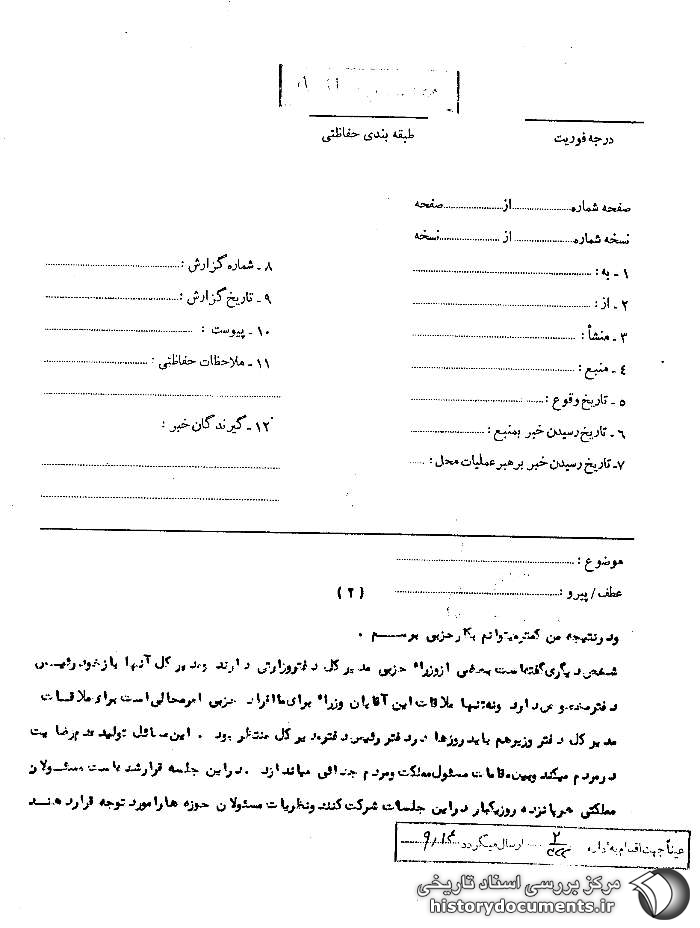 طبقه بندی حفاظتی
درجه فوریت
صفحه شماره................از................صفحه
نسخه شماره................از................نسخه
۱ - به :
۲ - از :
۳ - منشأ :
۴ - منبع :
۵ - تاریخ وقوع :
۶ - تاریخ رسیدن خبر بمنبع :
۷ - تاریخ رسیدن خبر برهبر عملیات محل :
۸ - شماره گزارش :
۹ - تاریخ گزارش :
۱۰ - پیوست :
۱۱ - ملاحظات حفاظتی :
۱۲ - گیرندگان خبر :
موضوع :
عطف / پیرو :
( ۲ )
ودرنتیجه من کمترمیتوانم بکارحزبی برسم .
شخص دیگری گفته است بعضی ازوزراء حزبی مدیرکل دفتروزارتی دارند ومدیرکل آنها بازخود رئیس
دفترمخصوص دارد ونه تنها ملاقات این آقایان وزراء برای ماافراد حزبی امرمحالی است برای ملاقات
مدیرکل دفتر وزیرهم باید روزها دردفتر رئیس دفترمدیرکل منتظر بود . این مسائل تولید عدم رضایت
درمردم میکند وبین مقامات مسئول مملکت ومردم جدائی میاندازد . دراین جلسه قرارشده است مسئولان
مملکتی هرپانزده روزیکبار دراین جلسات شرکت کنند ونظریات مسئولان حوزه هارامورد توجه قراردهند
عیناً جهت اقدام به اداره ارسال میگردد
مرکز بررسی اسناد تاریخی
historydocuments.ir